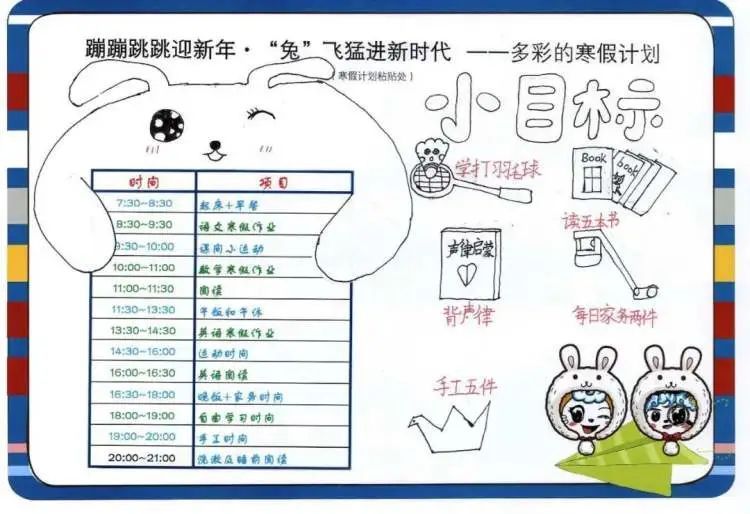 蹦蹦跳跳迎新年·“兔”飞猛进新时代 ——多彩的寒假计划
（寒假计划粘贴处）
小目标
时间 项目
7:30~8:30 起床+早餐
8:30~9:30 语文寒假作业
9:30~10:00 课间小运动
10:00~11:00 数学寒假作业
11:00~11:30 阅读
11:30~13:30 午饭和午休
13:30~14:30 英语寒假作业
14:30~16:00 运动时间
16:00~16:30 英语阅读
16:30~18:00 晚饭+家务时间
18:00~19:00 自由学习时间
19:00~20:00 手工时间
20:00~21:00 洗漱及睡前阅读
学打羽毛球
Book
book
读五本书
声律启蒙
背声律
每日家务两件
手工五件